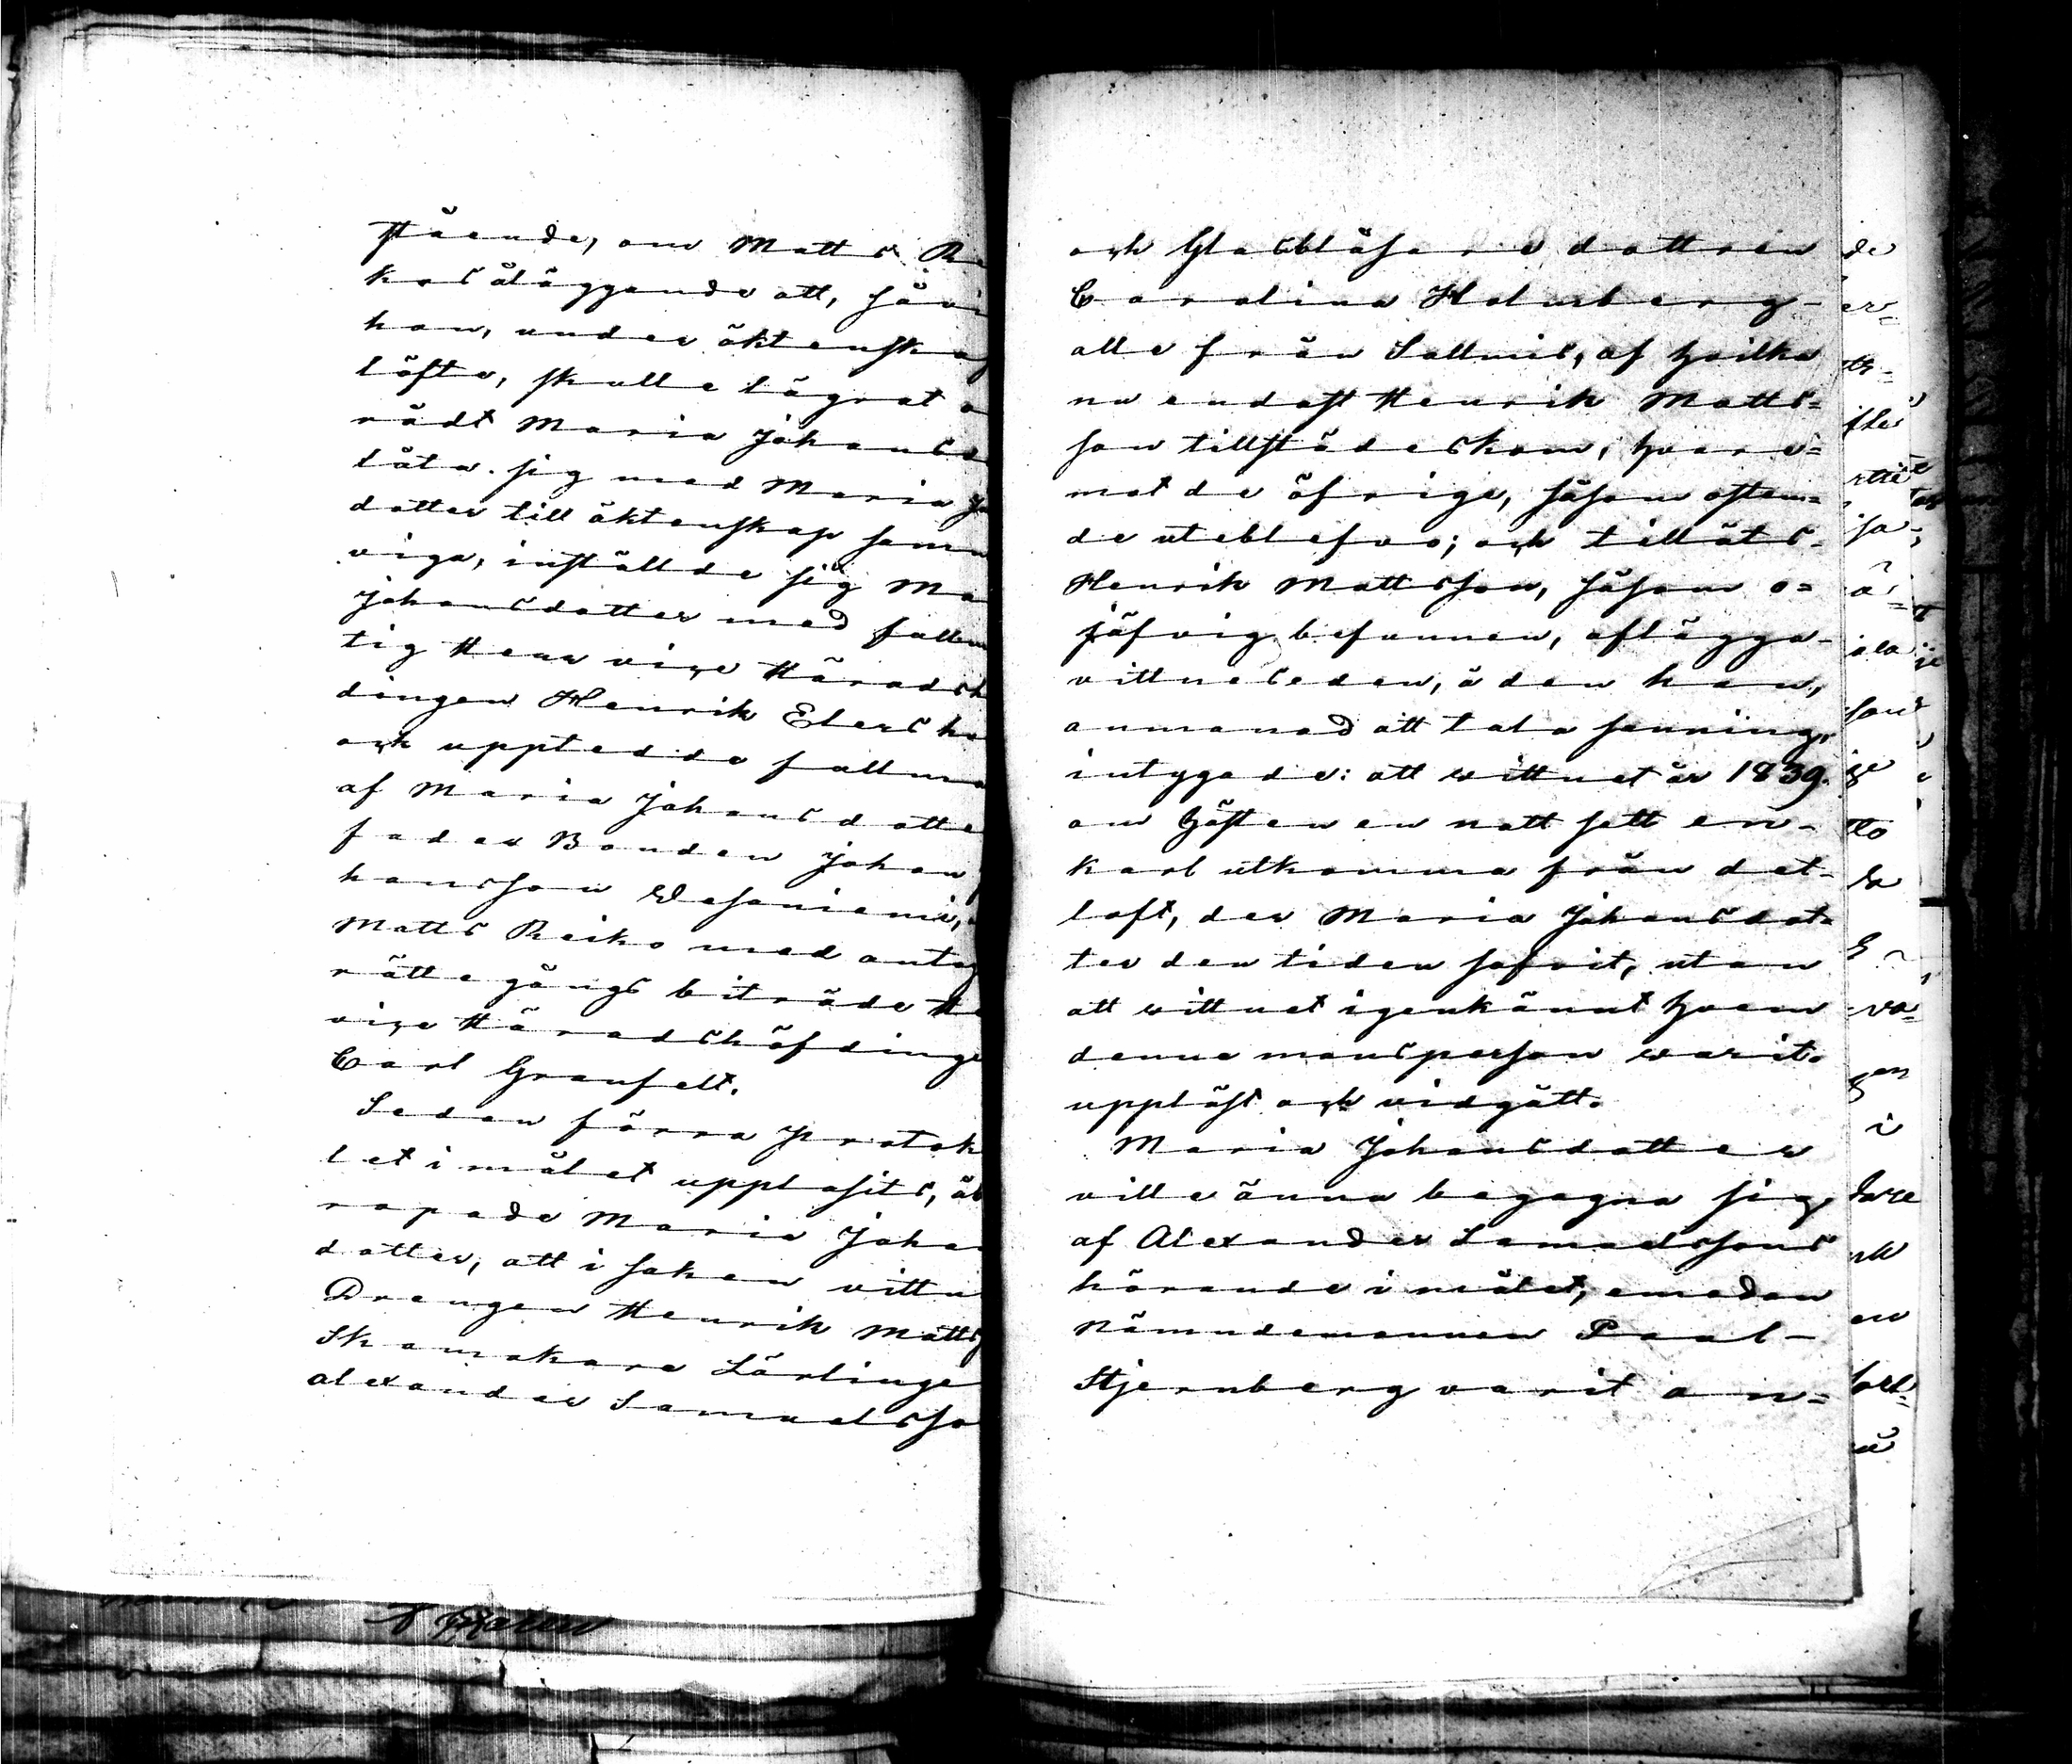 stående, om Matts Re
kos åläggande att, såvi
han, under äktenskap
löfte, skulle lägrat o
rådt Maria Johansd
låta sig med Maria Jo
dotter till äktenskap samm
viga, inställde sig Ma
Johansdotter med fullm
tig Herr vice Häradsh
dingen Henrik Elers ho
och uppte dde fullma
af Maria Johansdotte
fader Bonden Johan
hansson Wesaniemi,
Matts Reiko med antag
rättegångs biträde He
vice Häradshöfdinge
Carl Granfelt.
Sedan förra protok
let i målet upplasits, åb
ropade Maria Johan
dotter, att i saken vittn
Drengen Henrik Matts
Skomakare Lärlinge
Alexander Samuelsso
och Glasblåsare dottren
Carolina Holmberg
alla från Sallmis, af hvilka
nu endast Henrik Matts=
son tillstädeskom, hvare=
mot de öfrige, såsom ostem=
de uteblefvo; och tilläts
Henrik Mattsson, såsom o=
jäfvig befunnen, aflägga
vittneseden, å den han,
anmanad att tala sanning,
intygade: att wittnet år 1839.
om hösten en natt sett en
karl utkomma från det
loft, der Maria Johansdot=
ter den tiden sofvit, utan
att wittnet igenkännt hvem
denne mansperson warit.
uppläst och vidgått.
Maria Johansdotter
ville ännu begagna sig
af Alexander Samuelssons
hörande i målet, emedan
Nämndemannen Paul
Stjernberg varit an=